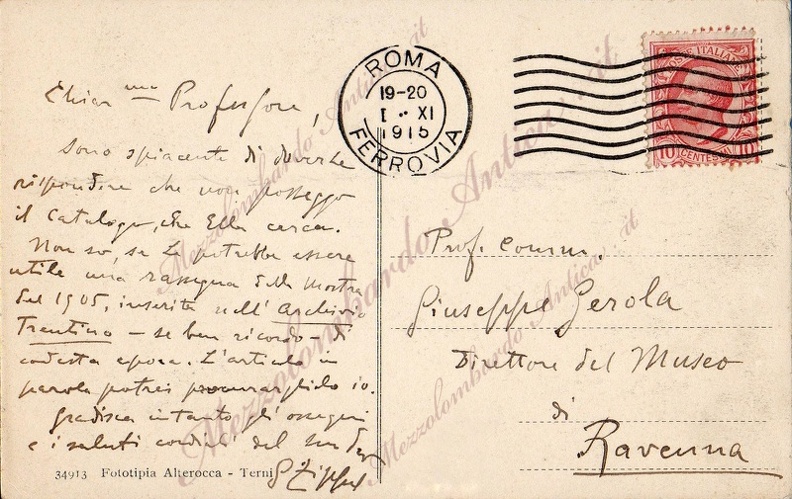 ROMA
19-20
I·· XI
1915
FERROVIA
POSTE ITALIANE
10 CENTESIMI 10
Chiar.mo Professore,
sono spiacente di doverle
rispondere che non posseggo
il Catalogo, che Ella cerca.
Non so, se Le potrebbe essere
utile una rassegna della Mostra
del 1905, inserita nell'Archivio
Trentino – se ben ricordo – di
codesta epoca. L'articolo in
parola potrei procurarglielo io.
Gradisca intanto gli ossequi
e i saluti cordiali del suo
G Zippel
34913 Fototipia Alterocca - Terni
Prof. Comm.
Giuseppe Gerola
Direttore del Museo
di
Ravenna
Mezzolombardo Antica .it
Mezzolombardo Antica .it
Mezzolombardo Antica .it